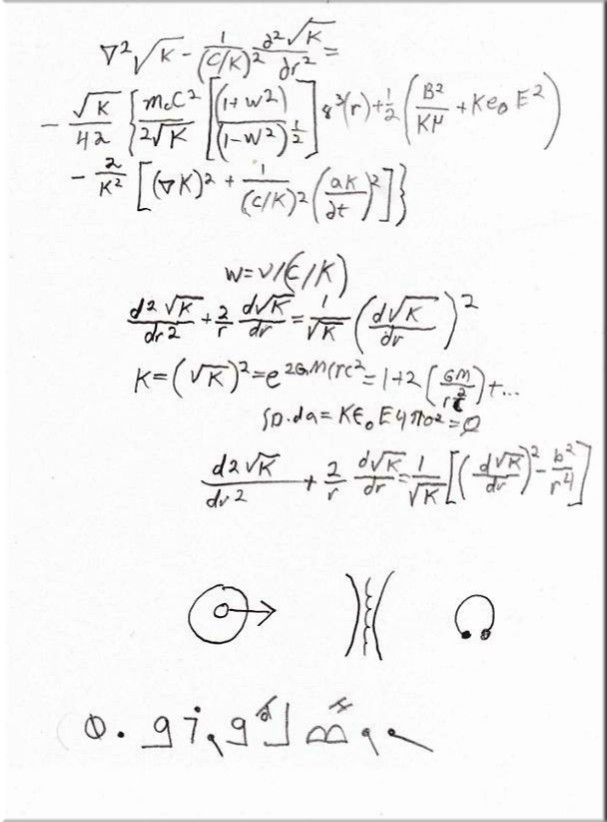 ∇²√K - 1/(C/K)² ∂²√K/∂r² =
- √K/4λ {m₀C²/2√K [(1+w²)/(1-w²)½] 8³(r) + ½ (B²/Kμ + Ke₀ E²)
- 2/K² [(∇K)² + 1/(C/K)² (∂K/∂t)²]}
w=v/(C/K)
d2√K/dr2 + 2/r d√K/dr = 1/√K (d√K/dr)²
K=(√K)²=e^2GM/rc² = 1+2(GM/rc²)+...
∫D.da = Kϵ₀E4πo²=Q
d2√K/dr2 + 2/r d√K/dr = 1/√K [(d√K/dr)² - b²/r4]